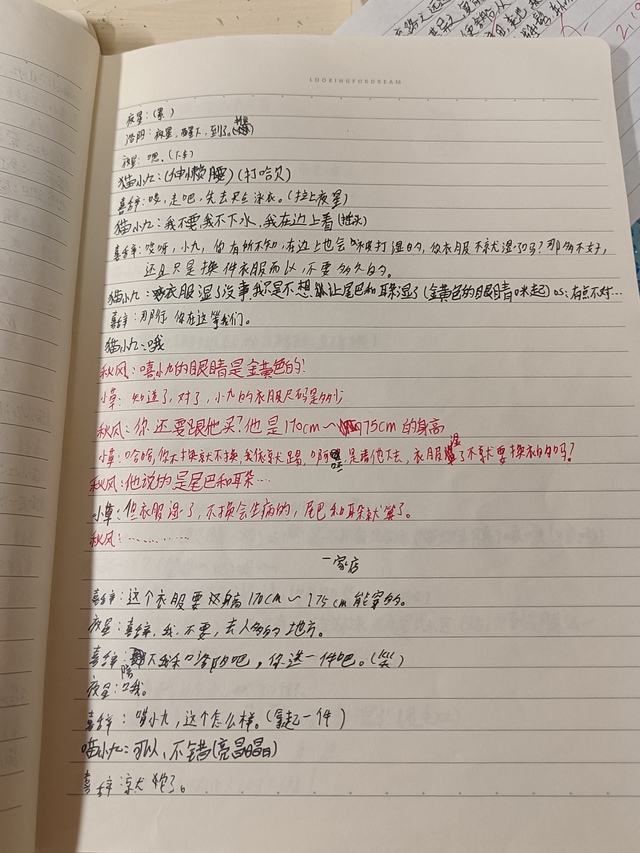 LOOKINGFORDREAM
夜星：(累)
洛阴：夜星，醒下，到了。
夜星：嗯。(下车)
猫小九：(伸懒腰)(打哈欠)
喜羊：咳，走吧，先去买泳衣。(拉上夜星)
猫小九：我不要我不下水，我在边上看
喜羊：哎呀，小九，你有所不知，在边上也会打湿的，你衣服不就湿了吗？那多不好，
还且只是换件衣服而以，不要多久的。
猫小九：衣服湿了没事，我只是不想让尾巴和耳朵湿了(金黄色的眼睛咪起) os：有点不对…
喜羊：那行，你在这等我们。
猫小九：哦
秋风：嘻小九的眼睛是金黄色的！
小草：知道了，对了，小九的衣服尺码是多少
秋风：你还要跟他买？他是170cm～175cm的身高
小草：哈哈，你不换就不换，我依就踢，是看他下去，衣服湿了不就要换衣服吗？
秋风：他说的是尾巴和耳朵…
小草：但衣服湿了，不换会生病的，尾巴和耳朵就算了。
秋风：…………
一家店
喜羊：这个衣服要身高170cm～175cm能穿的。
夜星：喜羊，我，不要，去人多的地方。
喜羊：不我和洛阴吧，你选一件吧。(笑)
夜星：哦。
喜羊：喵小九，这个怎么样。(拿起一件)
喵小九：可以，不错(亮晶晶)
喜羊：